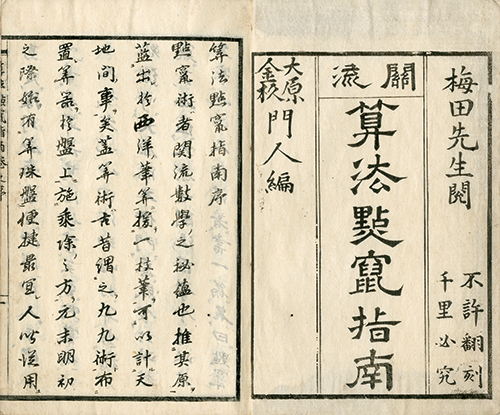 梅田先生閲
不許翻刻
千里必究
關流
算法點竄指南
大原
金杉
門人編
算法點竄指南序
點竄術者関流數學之秘蘊也推其原
蓝出於西洋筆算援一枝筆可以計天
地間事矣蓋算術古昔謂之九九術布
置算器於盤上施乗除之方元末明初
之際始有算珠盤便捷最冝人皆從用